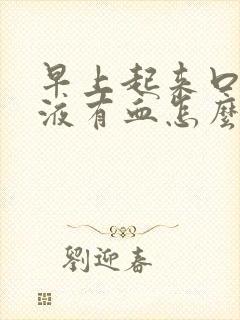 早上起来口
液有血怎麼
劉迎春